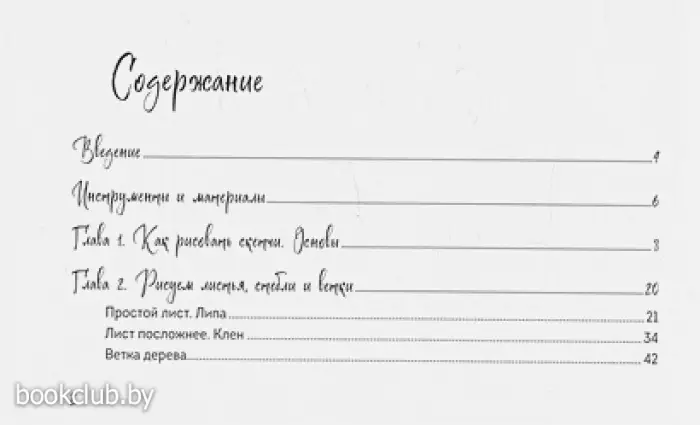 Содержание
Введение 4
Инструменты и материалы 6
Глава 1. Как рисовать скетчи. Основы 8
Глава 2. Рисуем листья, стебли и ветки 20
Простой лист. Липа 21
Лист посложнее. Клен 34
Ветка дерева 42
bookclub.by